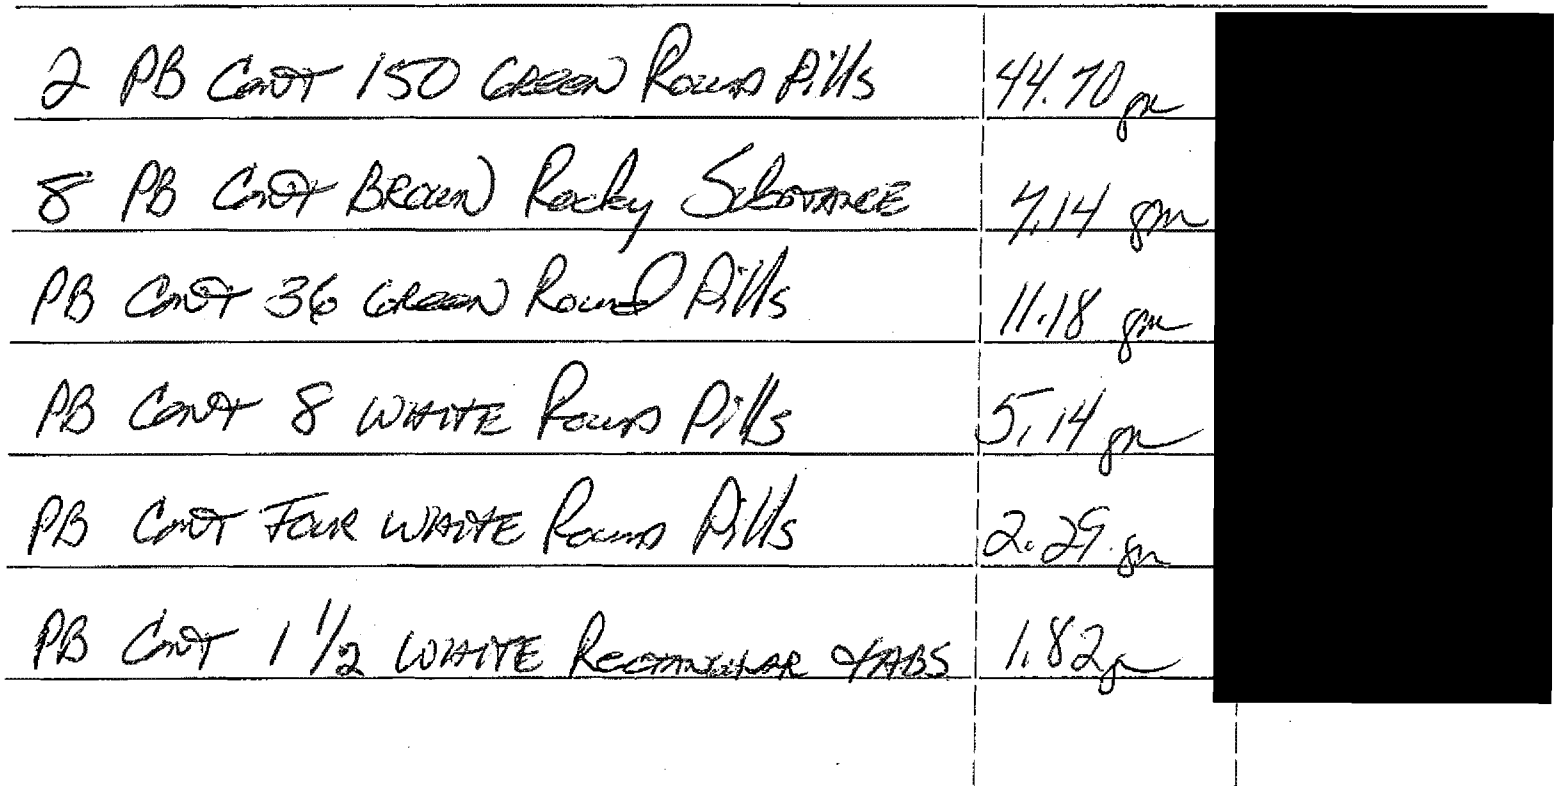 2 PB Cont 150 GREEN Round Pills 44.70 gm
8 PB Cont BROWN Rocky SUBSTANCE 7.14 gm
PB Cont 36 GREEN Round Pills 11.18 gm
PB Cont 8 WHITE Round Pills 5.14 gm
PB Cont FOUR WHITE Round Pills 2.29 gm
PB Cont 1 1/2 WHITE RECTANGULAR TABS 1.82 gm